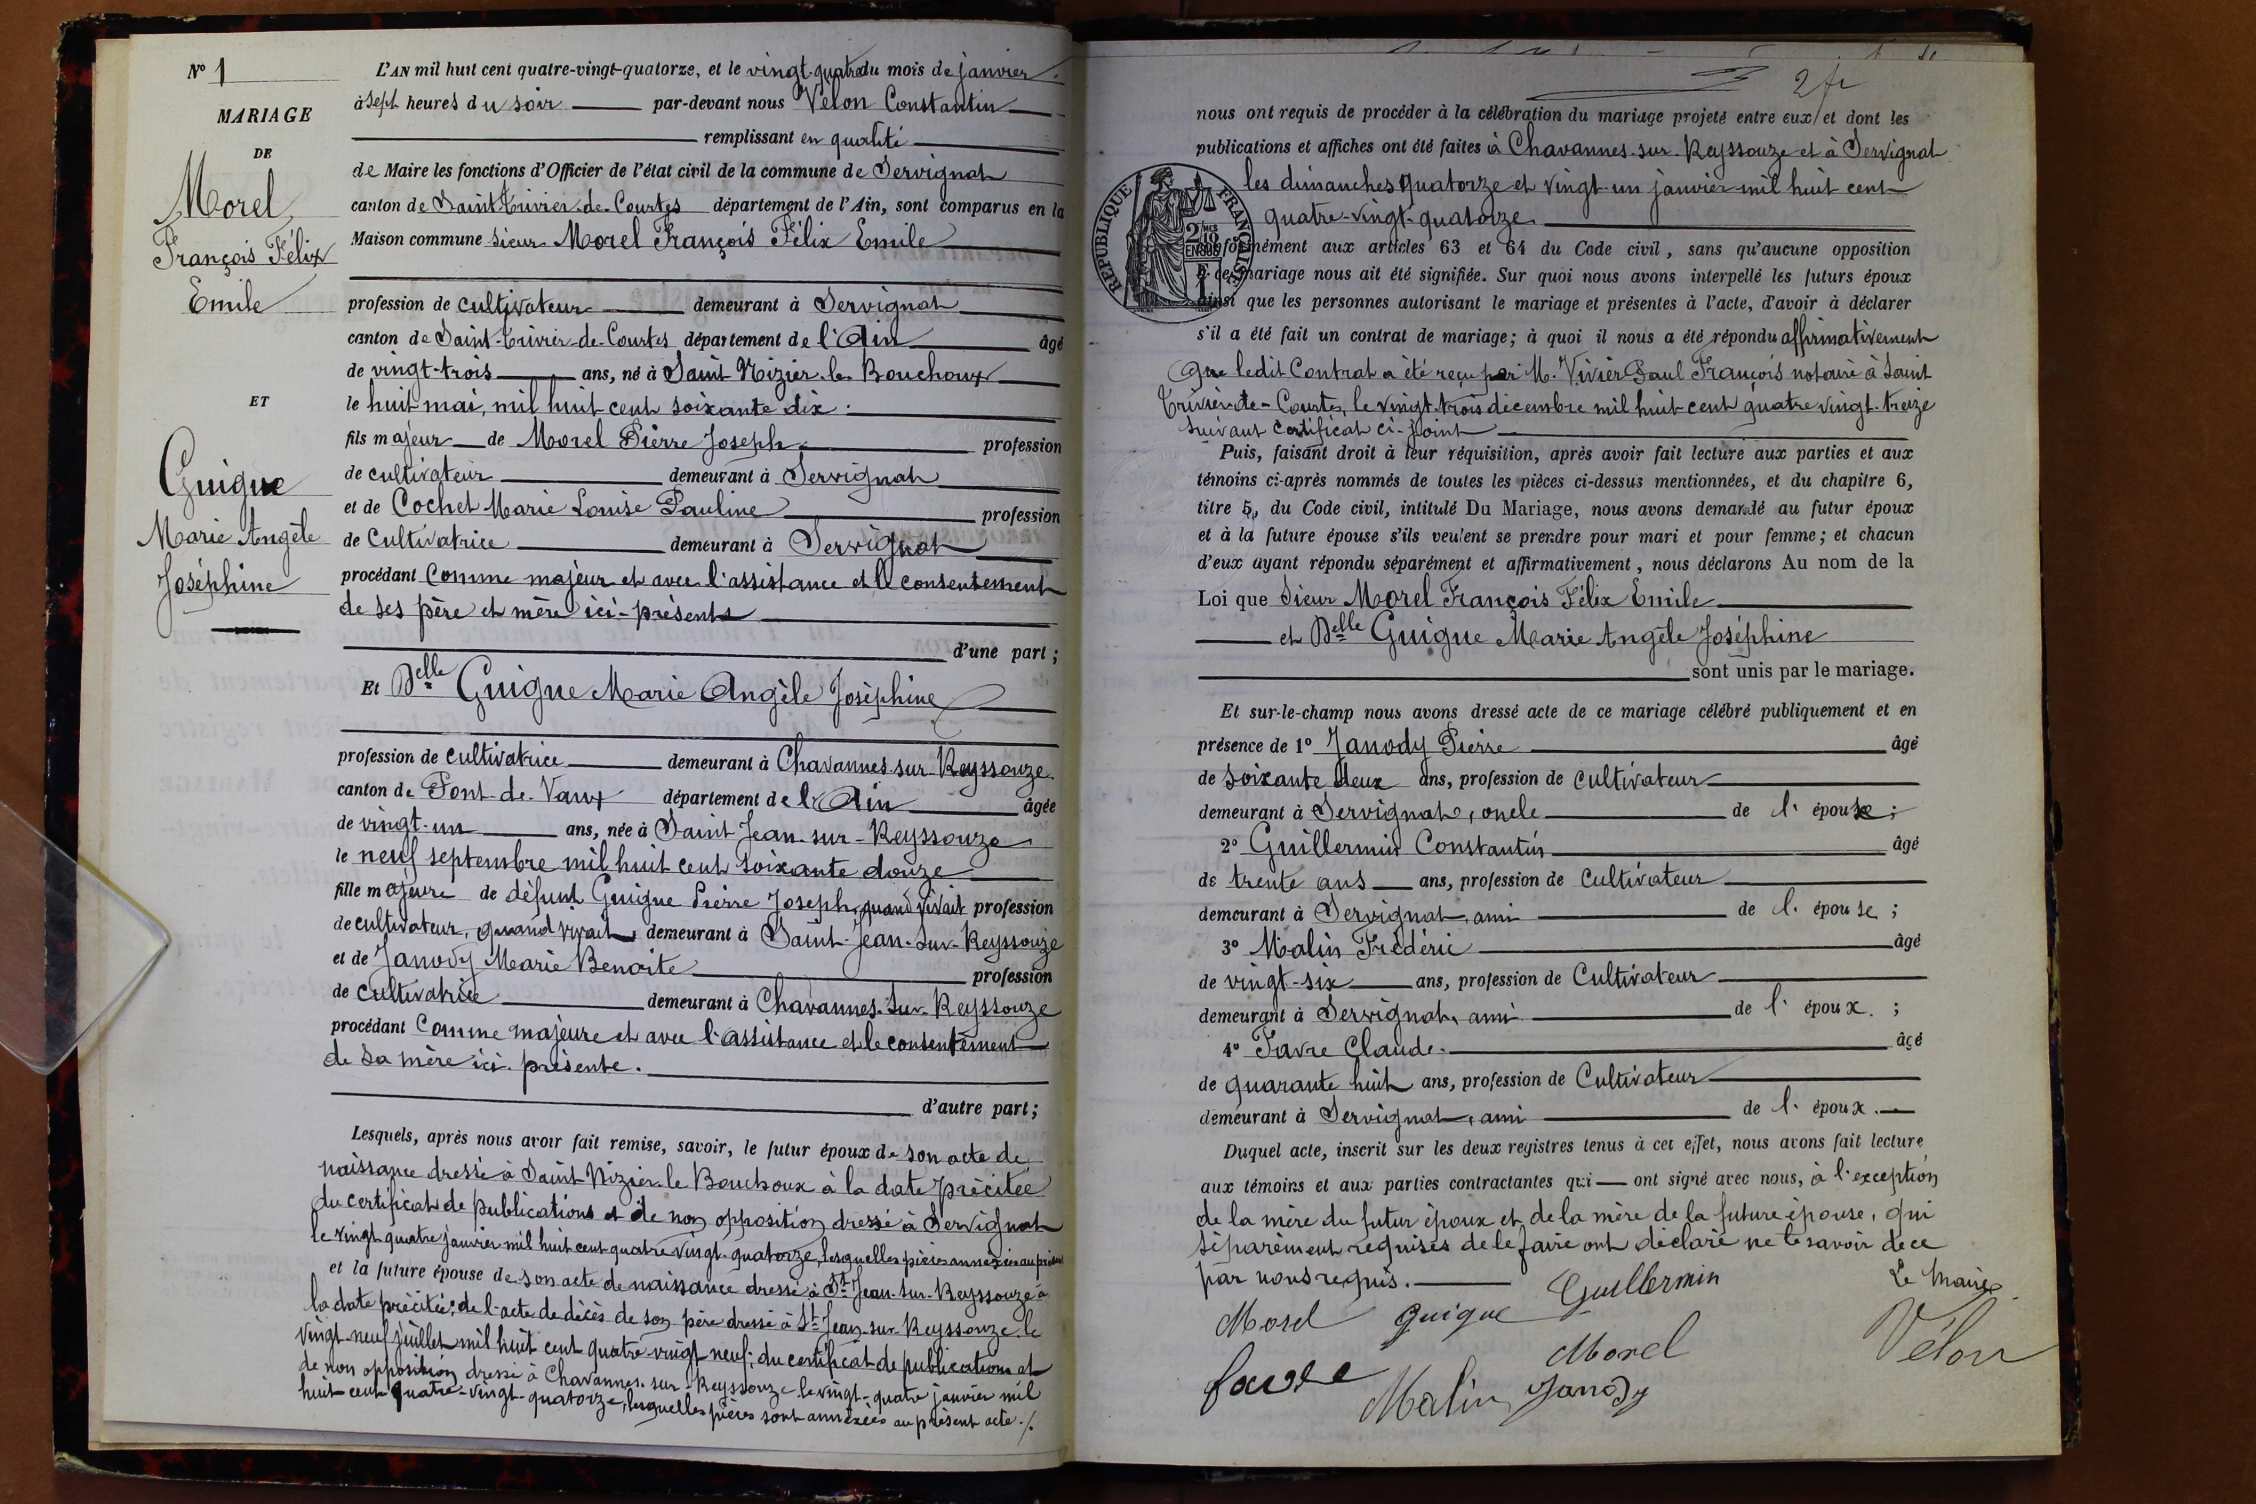 N° 1
MARIAGE
DE
Morel
François Félix
Emile
ET
Guigue
Marie Angèle
Joséphine
L'AN mil huit cent quatre-vingt-quatorze, et le vingt-quatre du mois de janvier
à sept heures du soir par-devant nous Vélon Constantin
remplissant en qualité
de Maire les fonctions d'Officier de l'état civil de la commune de Servignat
canton de Saint-Trivier-de-Courtes département de l'Ain, sont comparus en la
Maison commune Sieur Morel François Félix Emile
profession de cultivateur demeurant à Servignat
canton de Saint-Trivier-de-Courtes département de l'Ain âgé
de vingt-trois ans, né à Saint Nizier-le-Bouchoux
le huit mai, mil huit cent soixante dix.
fils majeur de Morel Pierre Joseph profession
de cultivateur demeurant à Servignat
et de Cochet Marie Louise Pauline profession
de Cultivatrice demeurant à Servignat
procédant Comme majeur et avec l'assistance et le consentement
de ses père et mère ici-présents
d'une part;
Et Delle Guigue Marie Angèle Joséphine
profession de cultivatrice demeurant à Chavannes-sur-Reyssouze
canton de Pont-de-Vaux département de l'Ain âgée
de vingt-un ans, née à Saint Jean-sur-Reyssouze
le neuf septembre mil huit cent soixante douze
fille majeure de défunt Guigue Pierre Joseph, quand vivait profession
de cultivateur, quand vivait, demeurant à Saint-Jean-sur-Reyssouze
et de Janody Marie Benoite profession
de cultivatrice demeurant à Chavannes-sur-Reyssouze
procédant Comme majeure et avec l'assistance et le consentement
de sa mère ici-présente.
d'autre part;
Lesquels, après nous avoir fait remise, savoir, le futur époux de son acte de
naissance dressé à Saint-Nizier-le-Bouchoux à la date précitée
du certificat de publications et de non opposition dressé à Servignat
le vingt quatre janvier mil huit cent quatre vingt-quatorze, lesquelles pièces annexées au présent
et la future épouse de son acte de naissance dressé à St Jean-sur-Reyssouze à
la date précitée; de l'acte de décès de son père dressé à St Jean-sur-Reyssouze le
vingt-neuf juillet mil huit cent quatre-vingt neuf; du certificat de publications et
de non opposition dressé à Chavannes-sur-Reyssouze le vingt-quatre janvier mil
huit cent quatre-vingt-quatorze, lesquelles pièces sont annexées au présent acte./.
2 fr
nous ont requis de procéder à la célébration du mariage projeté entre eux et dont les
publications et affiches ont été faites à Chavannes-sur-Reyssouze et à Servignat
les dimanches quatorze et vingt-un janvier mil huit cent
quatre-vingt-quatorze
RÉPUBLIQUE FRANÇAISE
conformément aux articles 63 et 64 du Code civil, sans qu'aucune opposition
à ce mariage nous ait été signifiée. Sur quoi nous avons interpellé les futurs époux
ainsi que les personnes autorisant le mariage et présentes à l'acte, d'avoir à déclarer
s'il a été fait un contrat de mariage; à quoi il nous a été répondu affirmativement
Que ledit Contrat a été reçu par M. Vivier Paul François notaire à Saint
Trivier-de-Courtes, le vingt-trois décembre mil huit cent quatre vingt-treize
suivant certificat ci-joint
Puis, faisant droit à leur réquisition, après avoir fait lecture aux parties et aux
témoins ci-après nommés de toutes les pièces ci-dessus mentionnées, et du chapitre 6,
titre 5, du Code civil, intitulé Du Mariage, nous avons demandé au futur époux
et à la future épouse s'ils veulent se prendre pour mari et pour femme; et chacun
d'eux ayant répondu séparément et affirmativement, nous déclarons Au nom de la
Loi que Sieur Morel François Félix Emile
et Delle Guigue Marie Angèle Joséphine
sont unis par le mariage.
Et sur-le-champ nous avons dressé acte de ce mariage célébré publiquement et en
présence de 1° Janody Pierre âgé
de soixante deux ans, profession de cultivateur
demeurant à Servignat, oncle de l'épouse;
2° Guillermin Constantin âgé
de trente ans ans, profession de Cultivateur
demeurant à Servignat, ami de l'épouse;
3° Malin Frédéric âgé
de vingt-six ans, profession de Cultivateur
demeurant à Servignat, ami de l'époux;
4° Favre Claude. âgé
de quarante huit ans, profession de Cultivateur
demeurant à Servignat, ami de l'époux.
Duquel acte, inscrit sur les deux registres tenus à cet effet, nous avons fait lecture
aux témoins et aux parties contractantes qui ont signé avec nous, à l'exception
de la mère du futur époux et de la mère de la future épouse, qui
séparément requises de le faire ont déclaré ne le savoir de ce
par nous requis.
Guillermin
Le Maire
Morel Guigue
Morel
Vélon
favre
Malin Janody